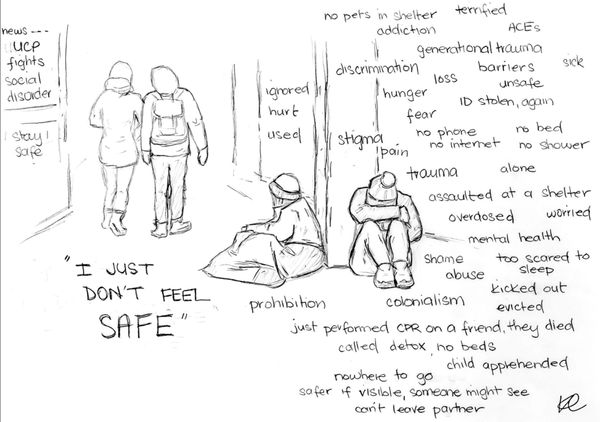 news ---
UCP
fights
social
disorder
stay
safe
"I JUST
DON'T FEEL
SAFE"
ignored
hurt
used
no pets in shelter terrified
addiction ACEs
generational trauma
discrimination barriers sick
loss unsafe
hunger
ID stolen, again
fear
no phone no bed
stigma no internet no shower
pain
trauma alone
assaulted at a shelter
overdosed worried
mental health
shame too scared to
sleep
abuse
kicked out
prohibition colonialism evicted
just performed CPR on a friend, they died
called detox, no beds
child apprehended
nowhere to go
safer if visible, someone might see
can't leave partner